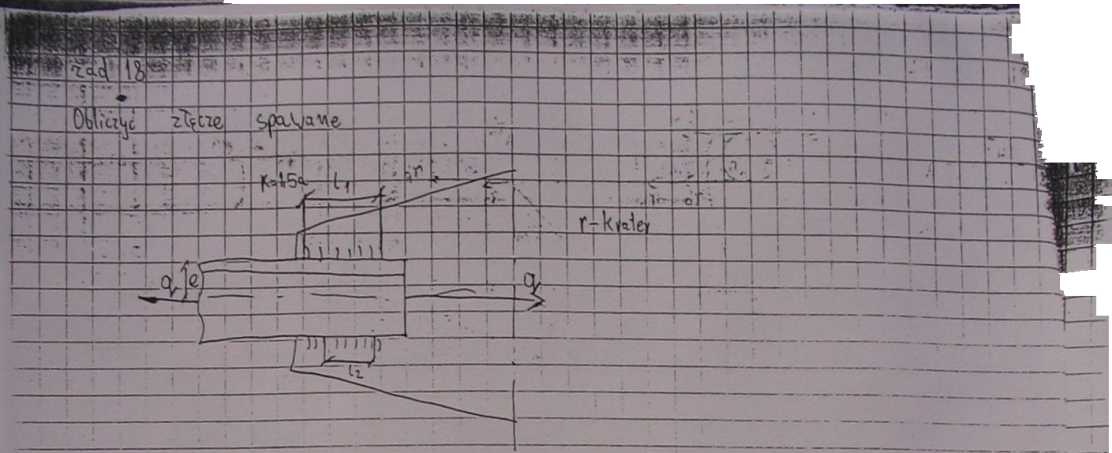 zad 18
Obliczyć złącze spawane
K=1.5a l₁ r
r-krater
q e q
l₂